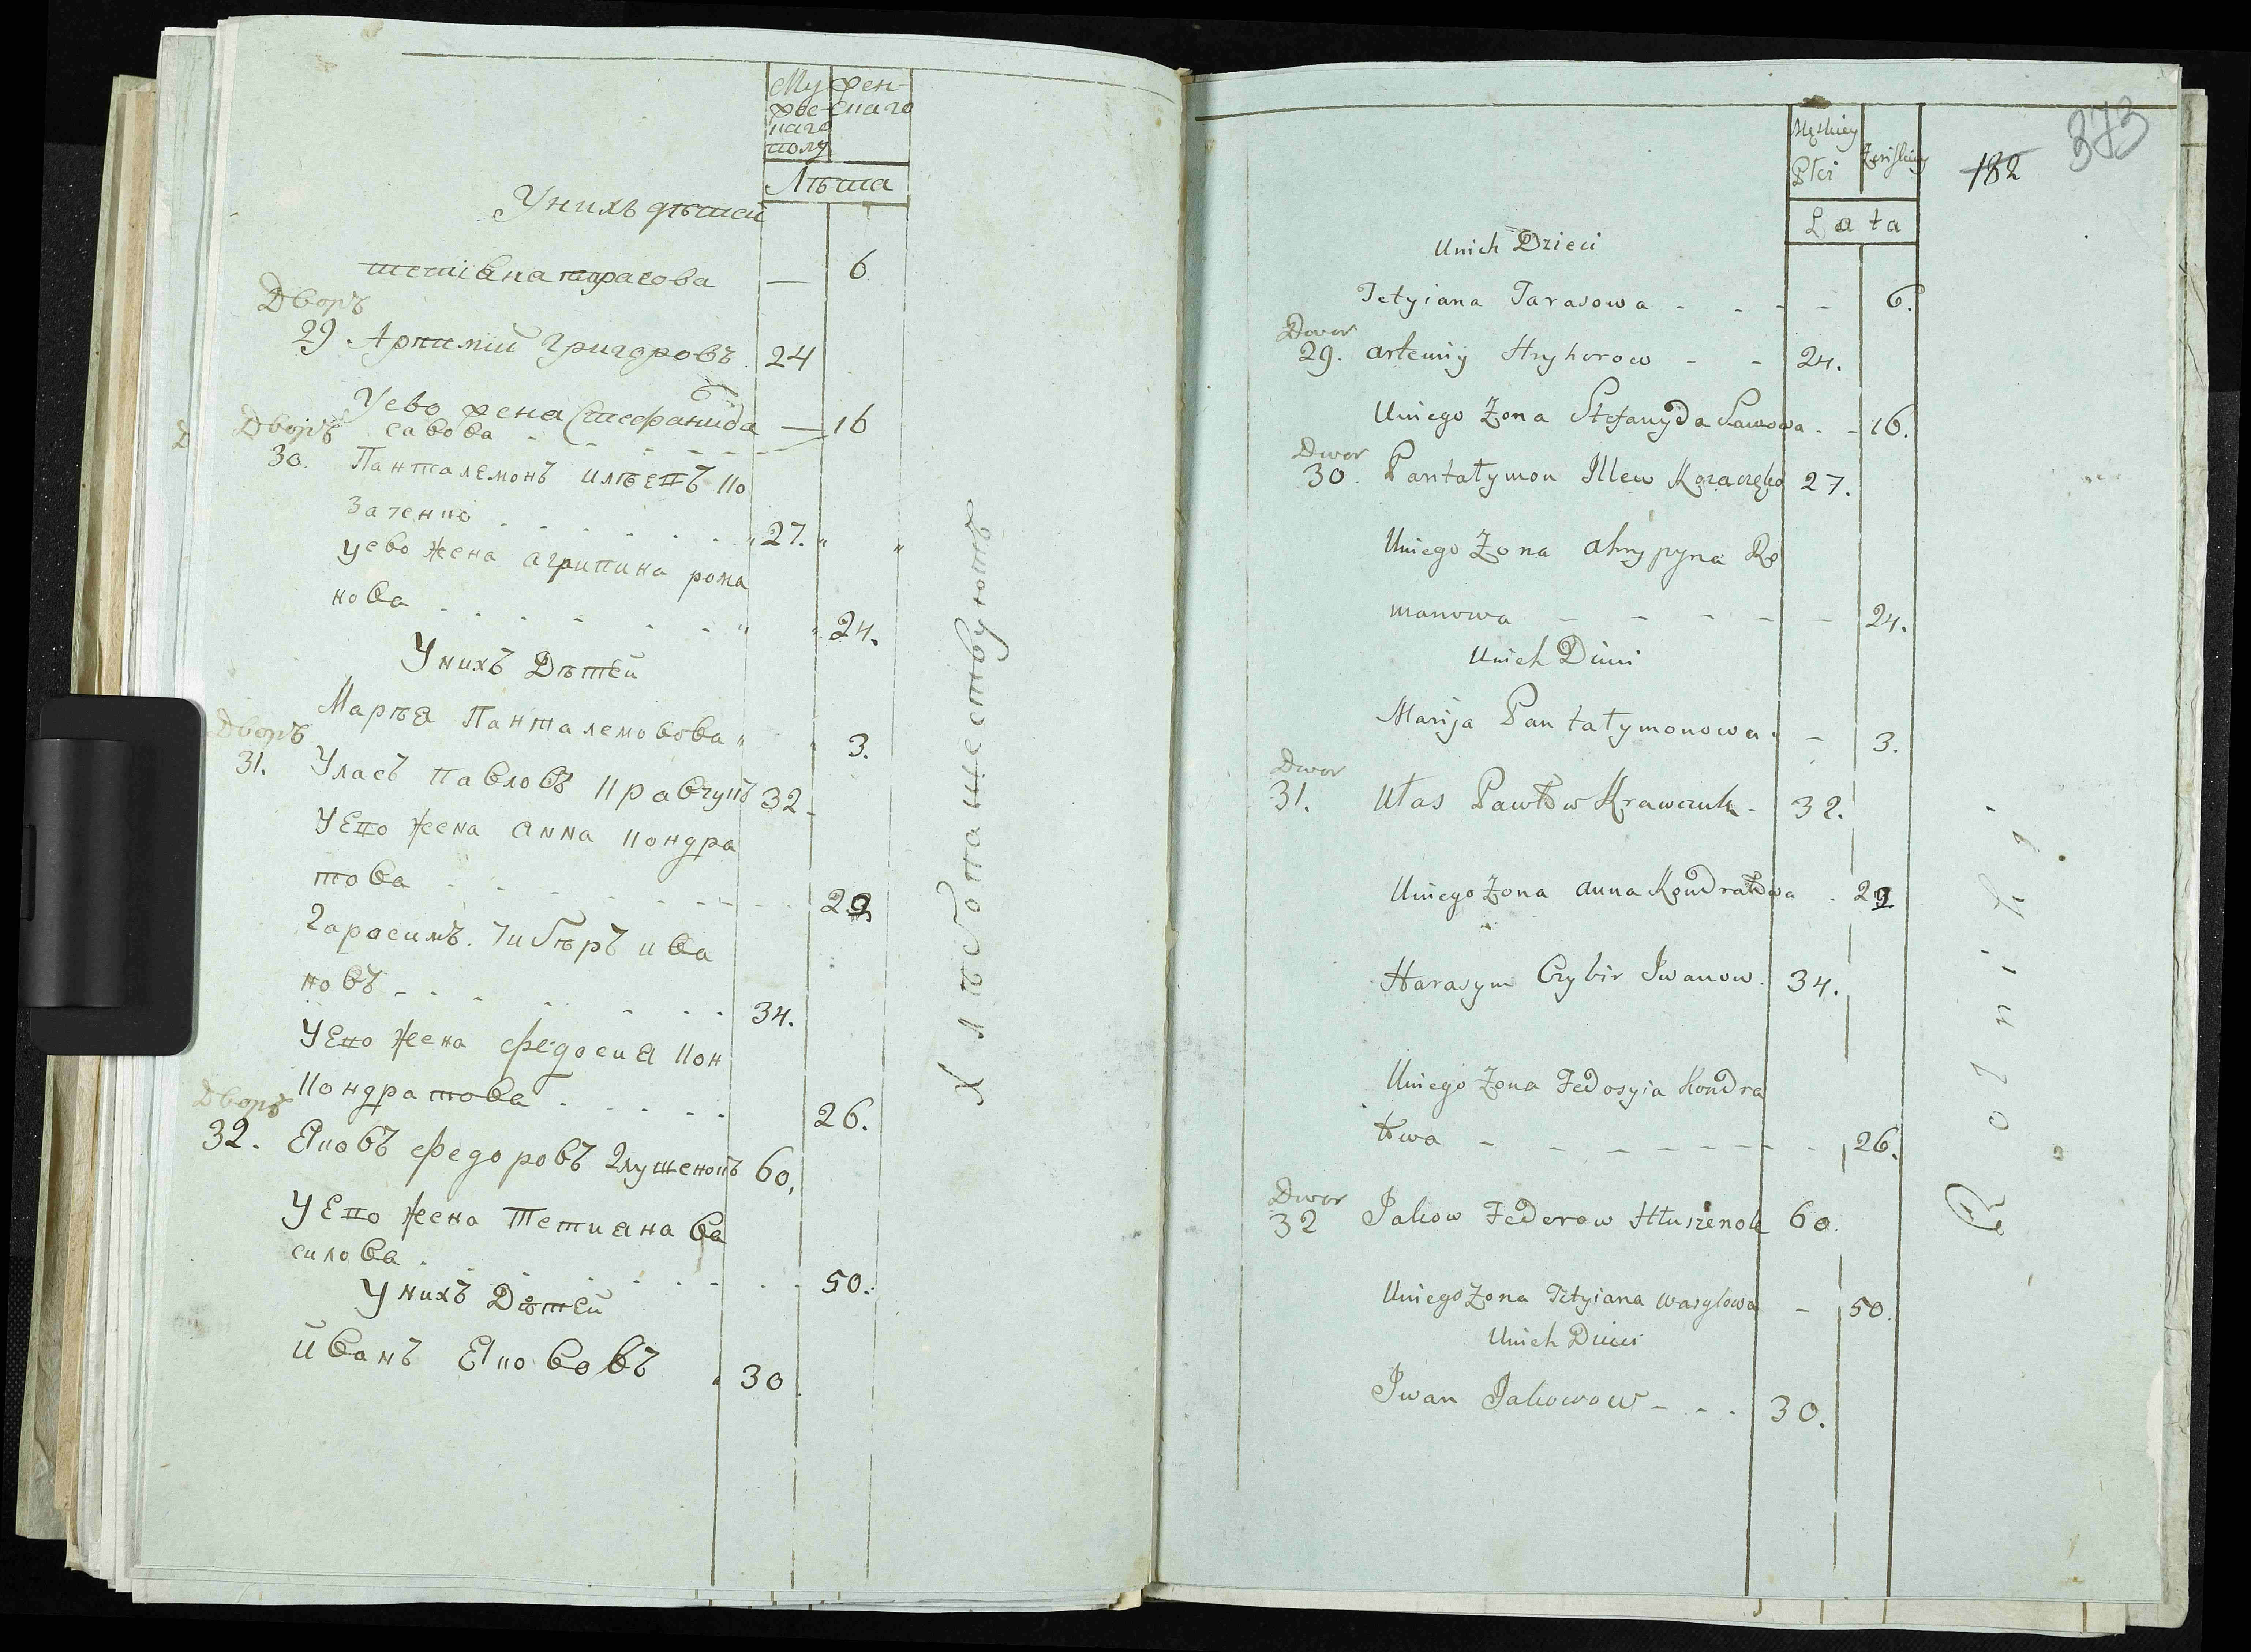 Му
жес
каго
полу
жен-
скаго
Лѣта
У нихъ дѣтей
тетiвна тарасова — 6
Дворъ
29 Артимiй Григоровъ. 24
У ево жена Стефанида — 16
савова
Дворъ
30. Панталемонъ илѣевъ Ко
заченко 27.
у ево жена агрипина рома
нова 24.
У нихъ Дѣтей
Марѣя Панталемовова 3.
Дворъ
31. Уласъ Павловъ Кравчукъ 32
У Его жена анна Кондра
това 29
Гарасимъ Чибѣръ ива
новъ 34.
У Его жена федосия Кон
Кондратова 26.
Дворъ
32. Яковъ Федоровъ Глушенокъ 60.
У Его жена Тетиана ва
силова 50.
У нихъ Дѣтей
иванъ Якововъ 30
Хлѣбопашествуютъ
373
182
Męskiey
Płci
Żeńskiey
Lata
U nich Dzieci
Tetyiana Tarasowa - - - - 6.
Dwor
29. Artemiy Hryhorow - - 24.
U niego Żona Stefanyda Sawowa - - 16.
Dwor
30. Pantałymon Illew Kozaczęko 27.
U niego Żona Ahrypyna Ro
manowa - - - - - - 24.
U nich Dzieci
Marija Pantałymonowa - 3.
Dwor
31. Ułas Pawłow Krawczuk - 32.
U niego Żona Anna Kondratowa . 29
Harasym Czybir Iwanow. 34.
U niego Żona Fedosyia Kondra
towa - - - - - - - 26.
Dwor
32 Jakow Federow Hłuszenok 60.
U niego Żona Tetyiana Wasylowa - 50.
U nich Dzieci
Iwan Jakowow - - - 30.
Rolniki